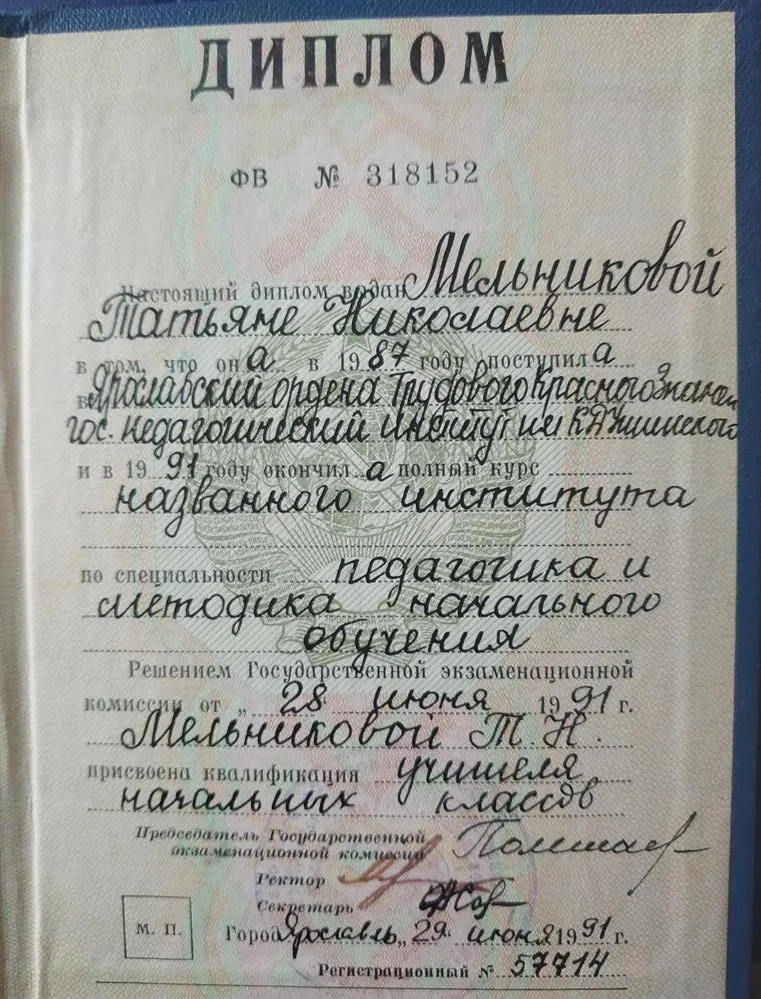 ДИПЛОМ
ФВ № 318152
Настоящий диплом выдан Мельниковой
Татьяне Николаевне
в том, что она в 1987 году поступила
в Ярославский ордена Трудового Красного Знамени
гос. педагогический институт им К.Д Ушинского
и в 1991 году окончила полный курс
названного института
по специальности педагогика и
методика начального
обучения
Решением Государственной экзаменационной
комиссии от „28 июня 1991 г.
Мельниковой Т. Н.
присвоена квалификация учителя
начальных классов
Председатель Государственной
экзаменационной комиссии
Ректор
Секретарь
М. П.
Город Ярославль „29 июня 1991 г.
Регистрационный № 57714